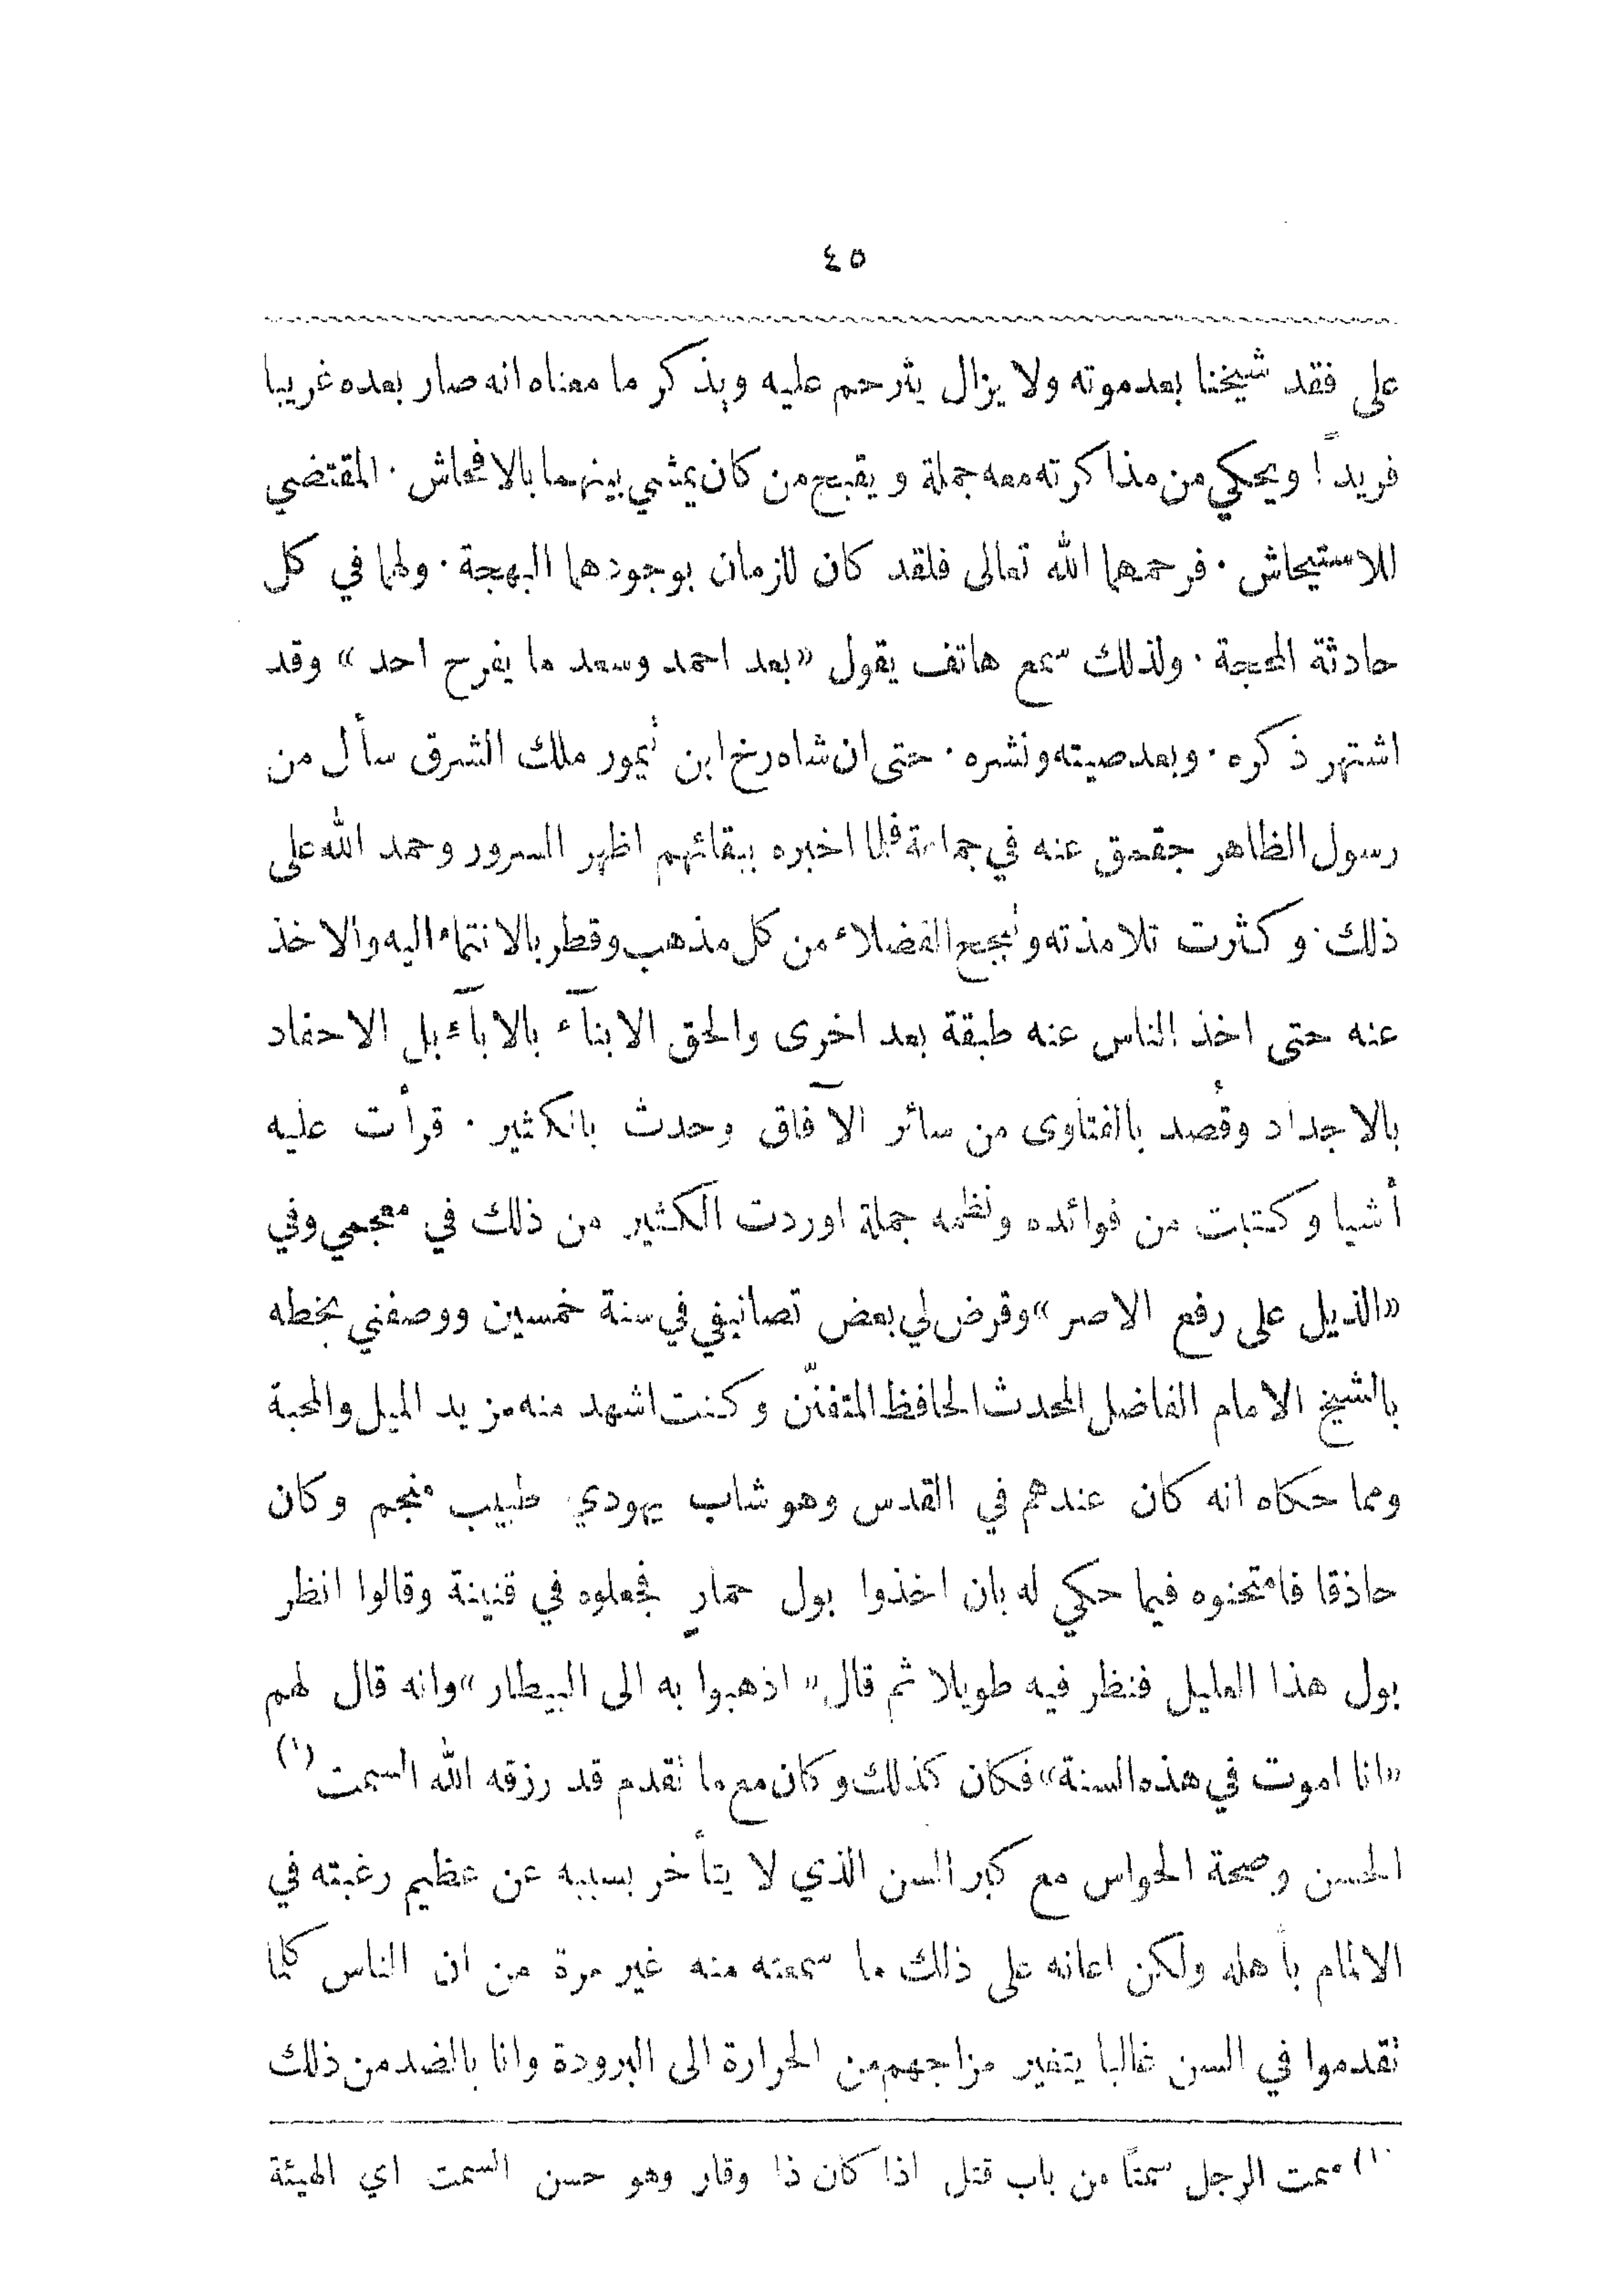 ٤٥
على فقد شيخنا بعد موته ولا يزال يترحم عليه ويذكر ما معناه انه صار بعده غريبا
فريداً ! ويحكي من مذاكرته معه جملة ويقبح من كان يمشي بينهما بالافحاش ٠ المقتضي
للاستيحاش ٠ فرحمهما الله تعالى فلقد كان للزمان بوجودهما البهجة ٠ ولهما في كل
حادثة المحجة ٠ ولذلك سمع هاتف يقول «بعد احمد وسعد ما يفرح احد» وقد
اشتهر ذكره ٠ وبعد صيته ونشره ٠ حتى ان شاه رخ ابن تيمور ملك الشرق سأل من
رسول الظاهر جقمق عنه في جماعة فلما اخبره ببقائهم اظهر السرور وحمد الله على
ذلك ٠ وكثرت تلامذته وتبجح الفضلاء من كل مذهب وقطر بالانتماء اليه والاخذ
عنه حتى اخذ الناس عنه طبقة بعد اخرى والحق الابنآء بالابآء بل الاحفاد
بالاجداد وقُصد بالفتاوى من سائر الآفاق وحدث بالكثير ٠ قرأت عليه
أشيا وكتبت من فوائده ونظمه جملة اوردت الكثير من ذلك في معجمي وفي
«الذيل على رفع الاصر» وقرض لي بعض تصانيفي في سنة خمسين ووصفني بخطه
بالشيخ الامام الفاضل المحدث الحافظ المتفنّن وكنت اشهد منه مزيد الميل والمحبة
ومما حكاه انه كان عندهم في القدس وهو شاب يهودي طبيب منجم وكان
حاذقا فامتحنوه فيما حكي له بان اخذوا بول حمارٍ فجعلوه في قنينة وقالوا انظر
بول هذا العليل فنظر فيه طويلا ثم قال «اذهبوا به الى البيطار» وانه قال لهم
«انا اموت في هذه السنة» فكان كذلك وكان مع ما تقدم قد رزقه الله السمت (١)
الحسن وصحة الحواس مع كبر السن الذي لا يتأخر بسببه عن عظيم رغبته في
الالمام بأهله ولكن اعانه على ذلك ما سمعته منه غير مرة من ان الناس كلما
تقدموا في السن غالبا يتغير مزاجهم من الحرارة الى البرودة وانا بالضد من ذلك
١) سمت الرجل سمتاً من باب قتل اذا كان ذا وقار وهو حسن السمت اي الهيئة